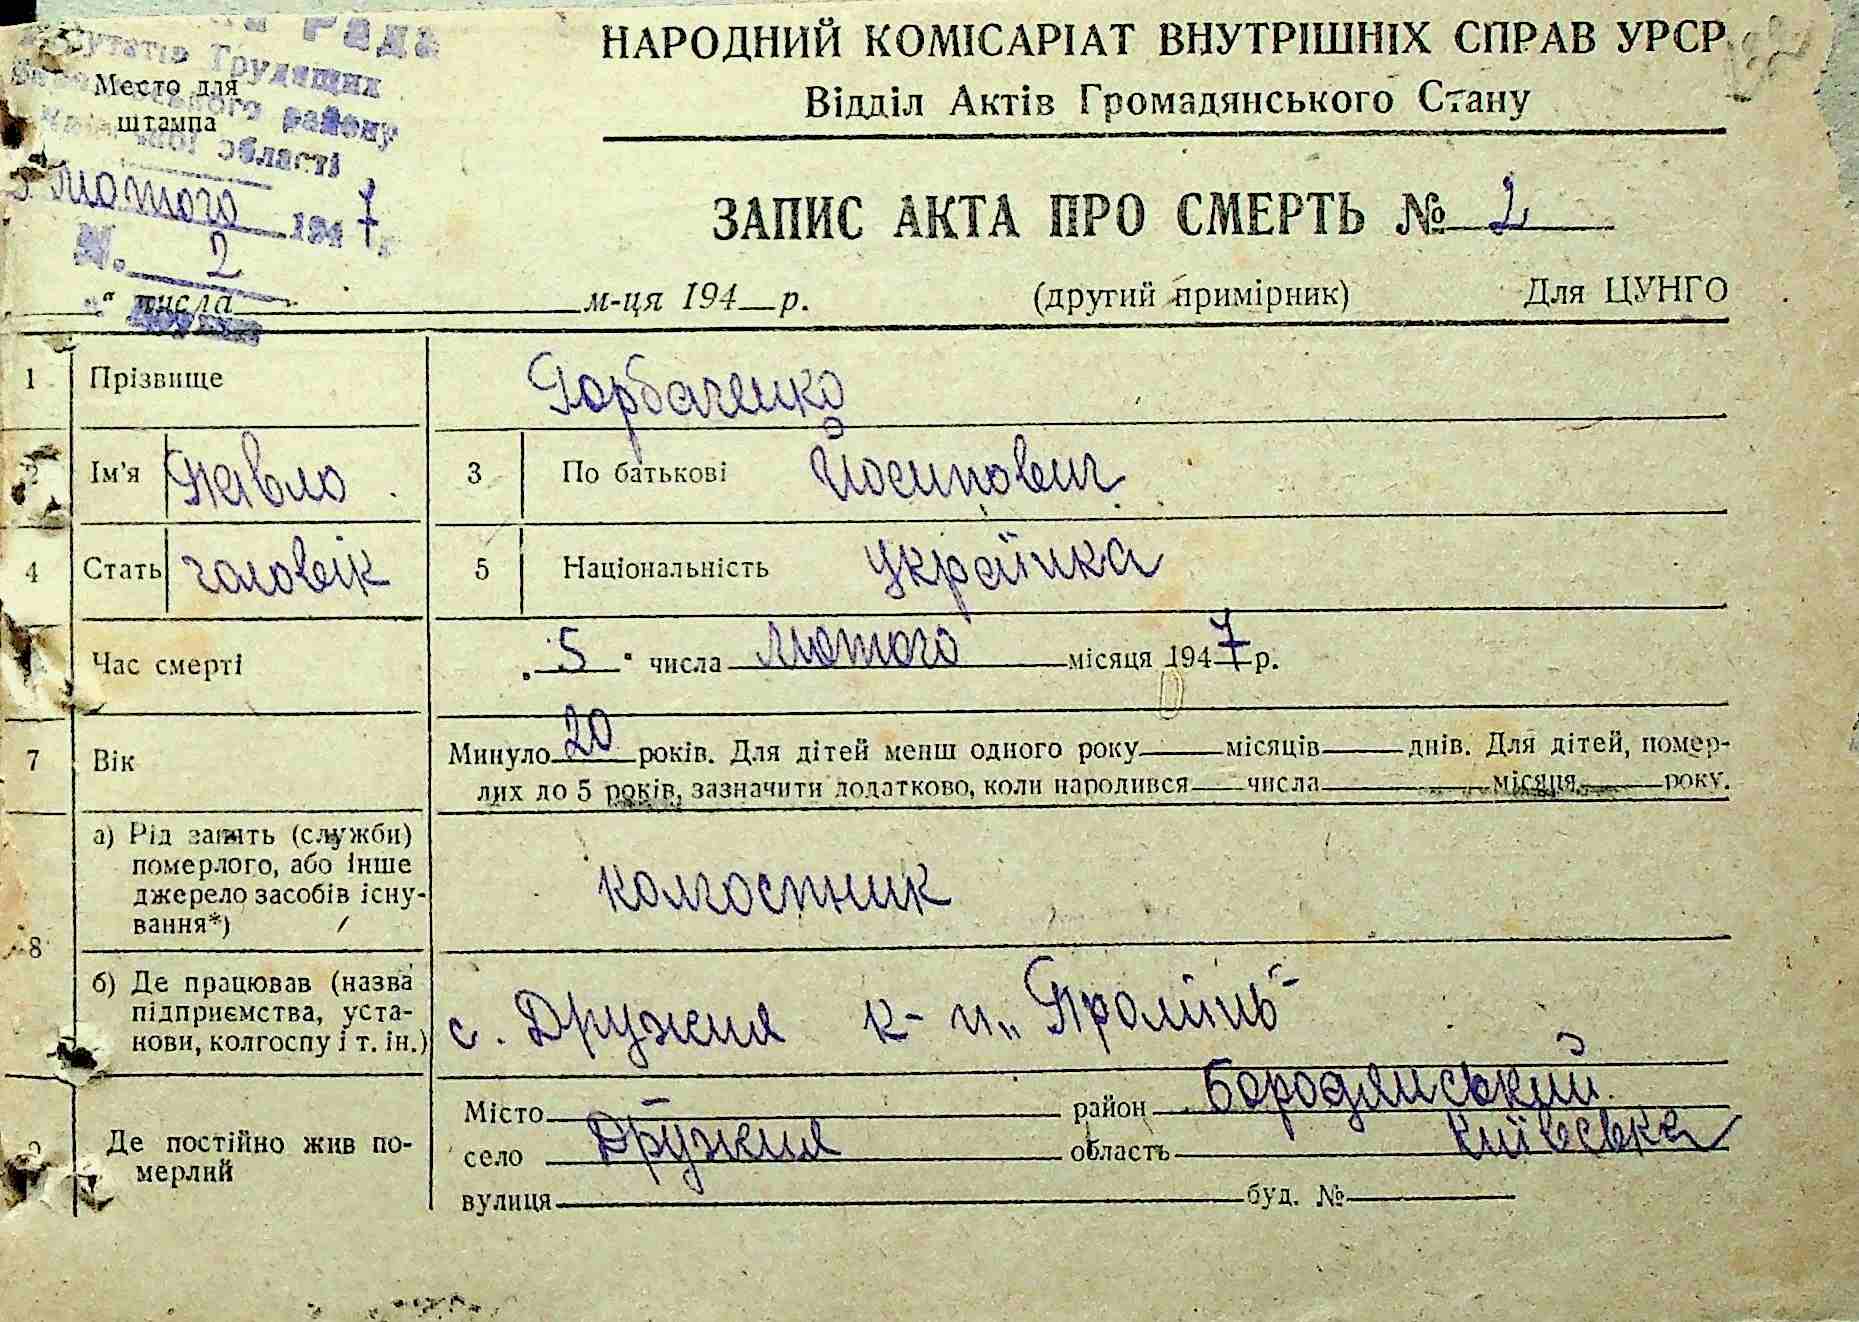 Рада
Депутатів Трудящих
району
області
Место для
штампа
5 лютого 1947 р.
№ 2
НАРОДНИЙ КОМІСАРІАТ ВНУТРІШНІХ СПРАВ УРСР
Відділ Актів Громадянського Стану
ЗАПИС АКТА ПРО СМЕРТЬ № 2
" числа м-ця 194 р. (другий примірник) Для ЦУНГО
1 Прізвище Горбаченко
2 Ім'я Павло 3 По батькові Йосипович
4 Стать чоловік 5 Національність українка
Час смерті „5" числа лютого місяця 1947 р.
7 Вік Минуло 20 років. Для дітей менш одного року місяців днів. Для дітей, помер-
лих до 5 років, зазначити додатково, коли народився числа місяця року.
8 а) Рід занять (служби)
померлого, або інше
джерело засобів існу-
вання*) колгоспник
б) Де працював (назва
підприємства, уста-
нови, колгоспу і т. ін.) с. Дружня к-п „Промінь"
9 Де постійно жив по-
мерлий
Місто — район Бородянський
село Дружня область Київська
вулиця буд. №